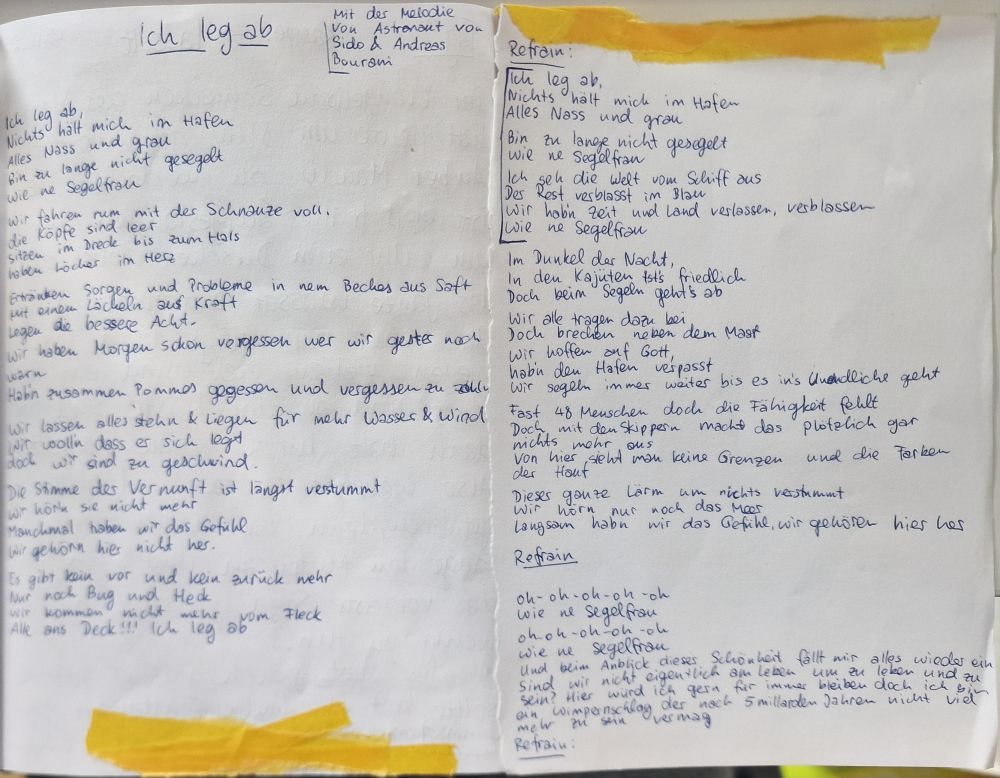 Ich leg ab
Mit der Melodie
von Astronaut von
Sido & Andreas
Bourani
Ich leg ab,
Nichts hält mich im Hafen
Alles Nass und grau
Bin zu lange nicht gesegelt
Wie ne Segelfrau
Wir fahren rum mit der Schnauze voll.
die Köpfe sind leer
sitzen im Dreck bis zum Hals
haben Löcher im Herz
Ertränken Sorgen und Probleme in nem Becher aus Saft
Mit einem Lächeln aus Kraft
Legen die bessere Acht.
Wir haben Morgen schon vergessen wer wir gestern noch
warn
Habn zusammen Pommes gegessen und vergessen zu
Wir lassen alles stehn & Liegen für mehr Wasser & Wind
Wir wolln dass es sich legt
doch wir sind zu geschwind.
Die Stimme des Vernunft ist längst verstummt
Wir hörn sie nicht mehr
Manchmal haben wir das Gefühl
Wir gehörn hier nicht her.
Es gibt kein vor und kein zurück mehr
Nur noch Bug und Heck
Wir kommen nicht mehr vom Fleck
Alle ans Deck!!! Ich leg ab
Refrain:
Ich leg ab,
Nichts hält mich im Hafen
Alles Nass und grau
Bin zu lange nicht gesegelt
Wie ne Segelfrau
Ich seh die Welt vom Schiff aus
Der Rest verblasst im Blau
Wir hab'n Zeit und Land verlassen, verblassen
Wie ne Segelfrau
Im Dunkel der Nacht,
In den Kajüten ist's friedlich
Doch beim Segeln geht's ab
Wir alle tragen dazu bei
Doch brechen neben dem Mast
Wir hoffen auf Gott,
hab'n den Hafen verpasst
Wir segeln immer weiter bis es in's Unendliche geht
Fast 48 Menschen doch die Fähigkeit fehlt
Doch mit den Skippern macht das plötzlich gar
nichts mehr aus
Von hier sieht man keine Grenzen und die Farben
der Hauf
Dieser ganze Lärm um nichts verstummt
Wir hörn nur noch das Meer
Langsam habn wir das Gefühl, wir gehören hier her
Refrain
oh-oh-oh-oh-oh
Wie ne Segelfrau
oh-oh-oh-oh-oh
Wie ne Segelfrau
Und beim Anblick dieser Schönheit fällt mir alles wieder ein
Sind wir nicht eigentlich am Leben um zu leben und zu
sein? Hier würd ich gern für immer bleiben doch ich bin
ein Wimpernschlag der nach 5 millarden Jahren nicht viel
mehr zu sein vermag
Refrain: